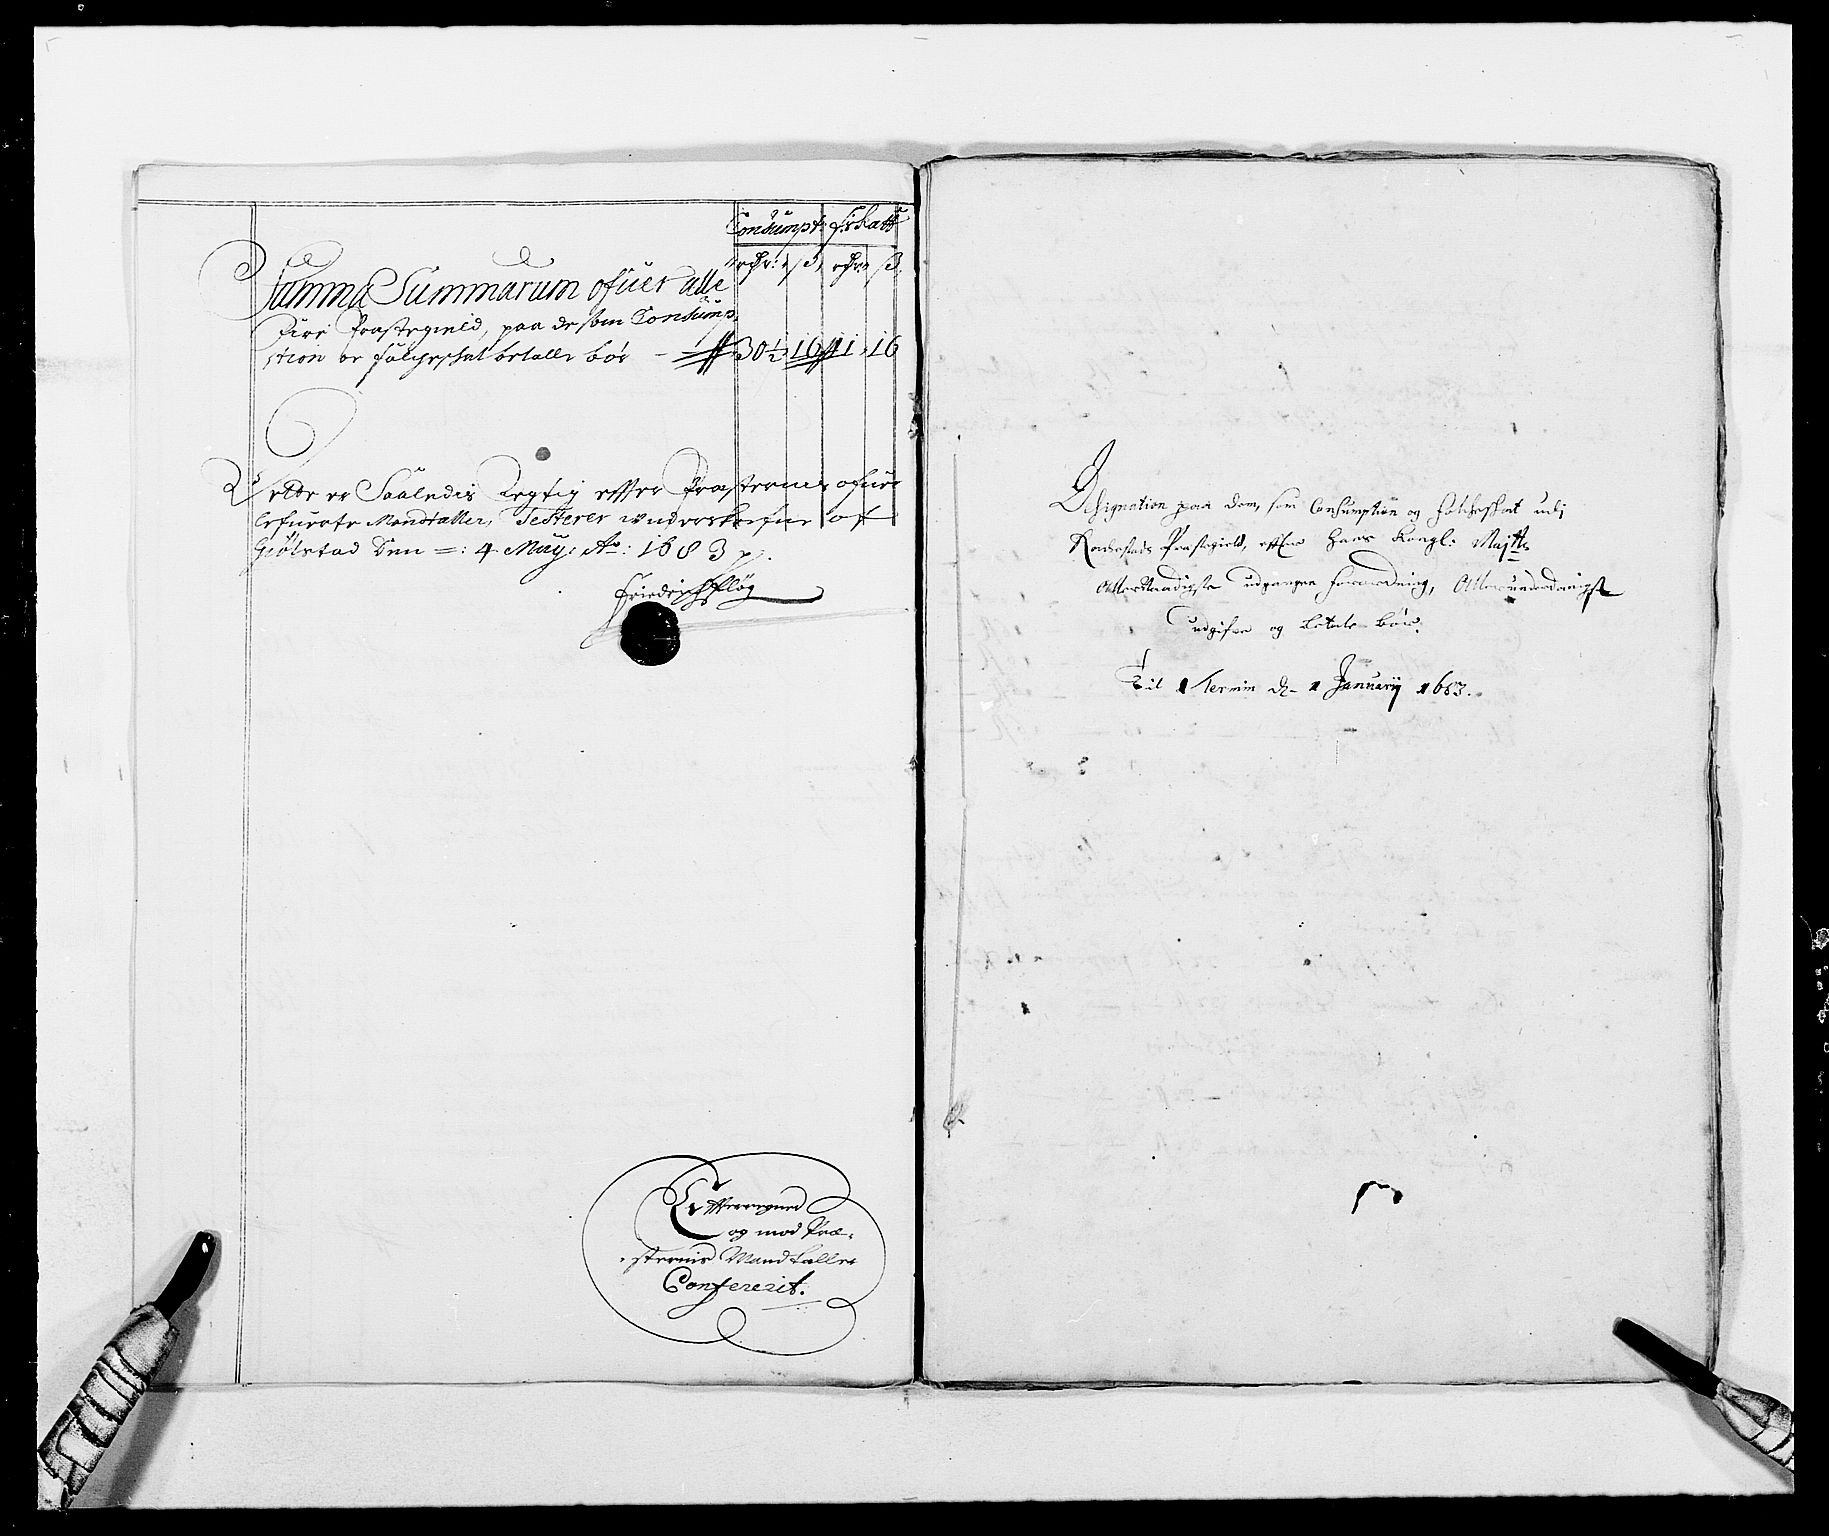 Consumpt: f:skatt
rdr: ß, rdr: ß.
Summa Summarum ofuer alle
fire Præstegield, paa de som Consump-
ption oc folcheskat betalle bør — 30½ 16 41 16
Dette er Saaledis Regtig efter Præsternis ofuer
lefuerte Mandtaller, Testerer underskrefuen af
Giølstad Den =: 4 May: Ao: 1683 p.
Friderich Pfløg
Efterregnet
og mod Præ-
sternis Mandtaller
Confererit.
Designation paa dem, som Consumption og folcheskat udj
Præstegield, efter Hans Kongl: Maijtts
Allernaadigste udgangne forordning, Allerunderdanigst
udgifve og betale bør.
Til 1 Termin d- 1 January 1683.